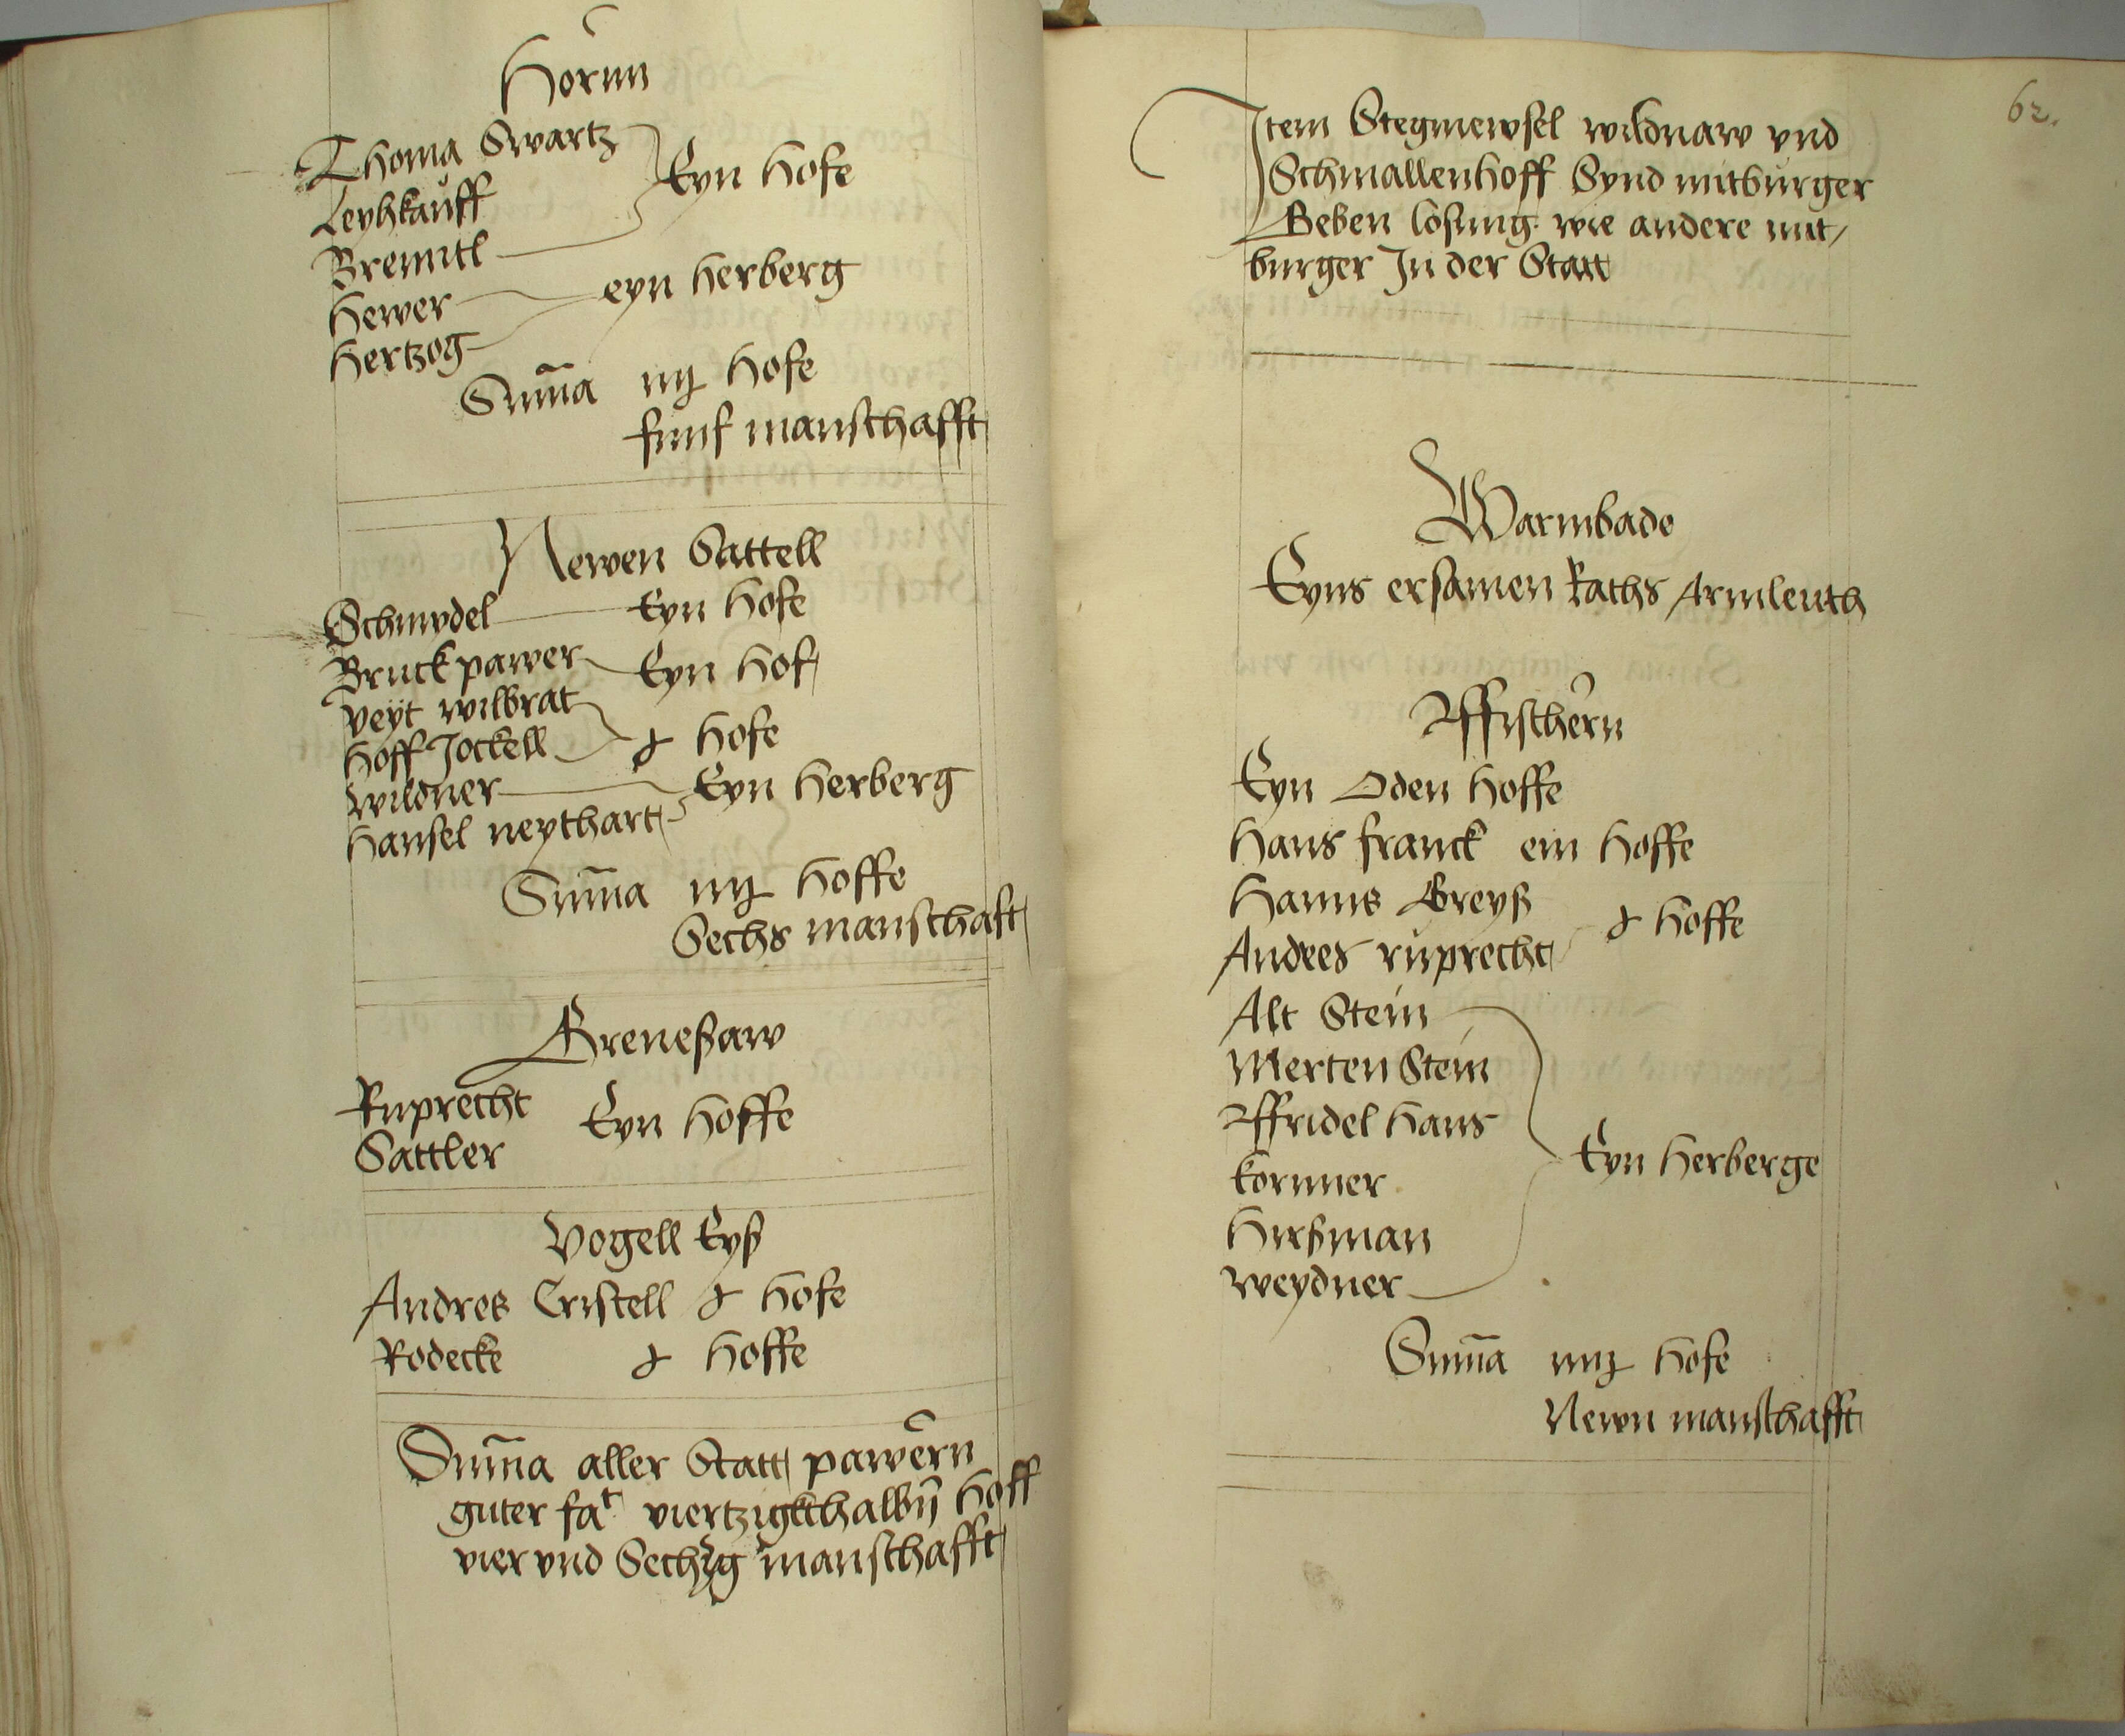 Hornn
Thoma Swartz
Leyhkauff Eyn Hofe
Bremitl
Hewer eyn Herberg
Hertzog
Sum̄a iiij Hofe
funf manschafft
Newen Sattell
Schmydel Eyn Hofe
Bruckpawer Eyn Hof
Veyt wilbrat
Hoff Jockell Hofe
Wildner Eyn Herberg
Hansel neythart
Sum̄a iiij Hoffe
Sechs manschaft
Greneßaw
Ruprecht Eyn Hoffe
Sattler
Vogell Eyß
Andres Cristell Hofe
Rodecke Hoffe
Sum̄a aller Statt pawern
guter fat viertzigkthalbn̄ Hoff
vier vnd Sechzg manschafft
62.
Item Stegmewsel wildnaw vnd
Schmallenhoff Synd mitburger
Geben losung wie andere mit/
burger In der Statt
Warmbade
Eyns ersamen Raths Armleuth
Ffischern
Eyn Oden Hoffe
Hans franck ein Hoffe
Hanns Greyß
Andres ruprecht Hoffe
Alt Stein
Merten Stein
Ffridel Hans
Kornner Eyn Herberge
Hirßman
Weydner
Sum̄a iiij Hofe
Newn manschafft